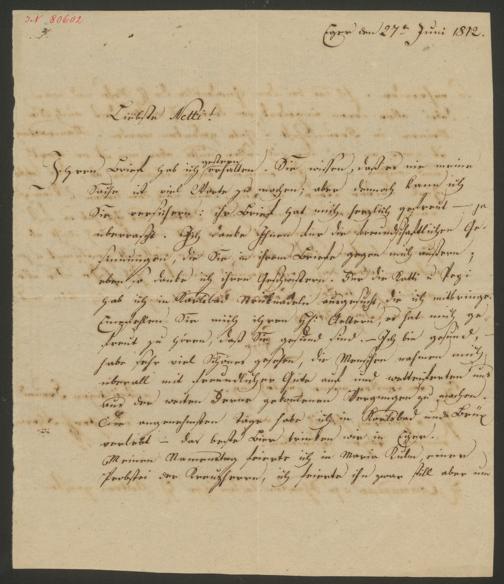 I.N. 80602
Eger den 27t Juni 1812.
Liebste Netti!
Ihren Brief hab ich gestern erhalten. Sie wissen, daß es nie meine
Sache ist viel Worte zu machen; aber dennoch kann ich
Sie versichern: ihr Brief hat mich herzlich gefreut — ja
überrascht. Ich danke Ihnen für die freundschaftlichen Ge-
sinnungen, die Sie in ihrem Briefe gegen mich äußern;
eben so danke ich ihren Geschwistern. Für die Katti u Pepi
hab ich in Karlsbad Stricknadeln ausgesucht, die ich mitbringe.
Empfehlen Sie mich ihren Aeltern, es hat mich ge-
freut zu hören, daß Sie gesund sind. — Ich bin gesund, —
habe sehr viel Schönes gesehen, die Menschen nahmen mich
überall mit freundlicher Güte auf und wetteiferten uns
aus der weiten Ferne gekommenen Vergnügen zu machen.
Die angenehmsten Tage habe ich in Karlsbad und Brüx
verlebt — das beste Bier trinken wir in Eger.
Meinen Namenstag feierte ich in Maria Kulm, einer
Probstei der Kreuzherrn, ich feierte ihn zwar still aber um